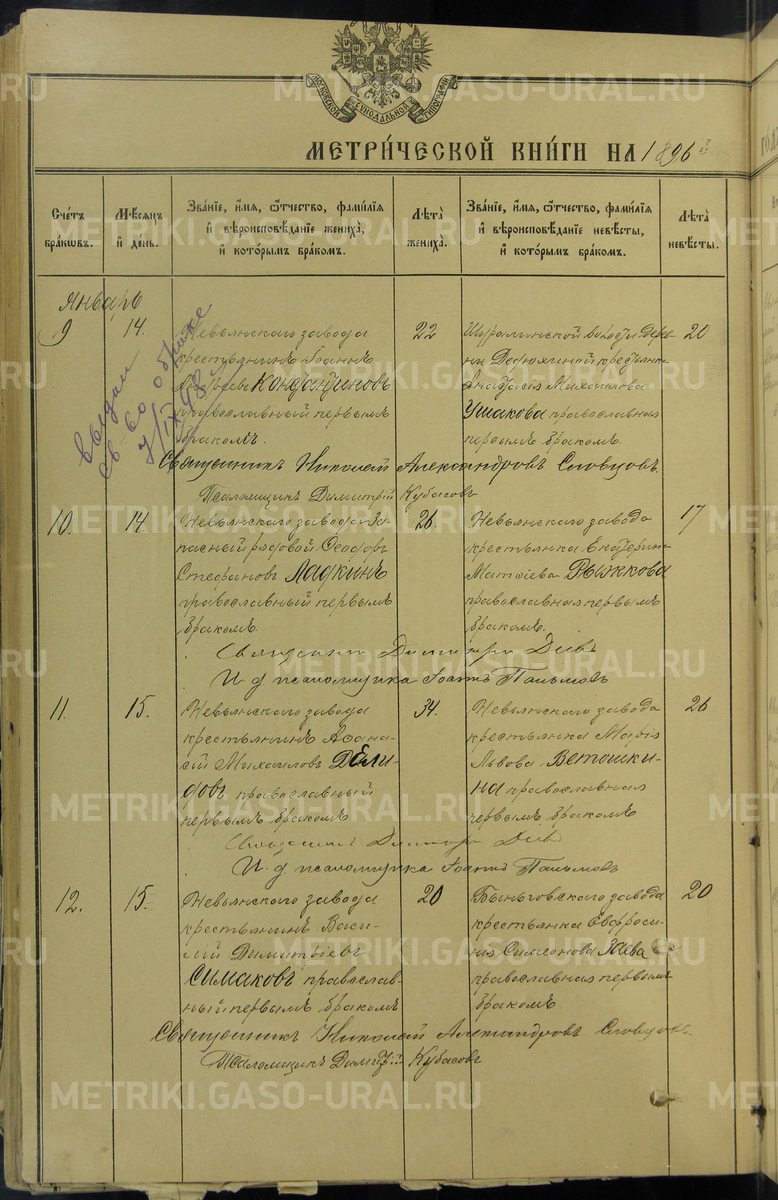 МОСКОВСКОЙ СѴНОДАЛЬНОЙ ТИПОГРАФІИ
МЕТРИ́ЧЕСКОЙ КНИ́ГИ НА 1896 й
Сче́тъ бра́кѡвъ.
Мѣ́сяцъ и҆ де́нь.
Зва́нїе, и҆́мѧ, ѻ҆́тчество, фами́лїѧ и҆ вѣроисповѣ́данїе жениха̀, и҆ кото́рымъ бра́комъ.
Лѣ́та жениха̀.
Зва́нїе, и҆́мѧ, ѻ҆́тчество, фами́лїѧ и҆ вѣроисповѣ́данїе невѣ́сты, и҆ кото́рымъ бра́комъ.
Лѣ́та невѣ́сты.
Январь
9
14.
Невьянскаго завода
крестьянинъ Іоаннъ
Андреевъ
православный первымъ
бракомъ.
22
Шуралинской волости дерев-
ни крестьянка
Анастасія Михаилова
Ушакова православная
первымъ бракомъ.
20
выдан
св-во о браке
7/IX 48
Священникъ Николай Александровъ Словцовъ.
Псаломщикъ Димитрій Кубасовъ
10.
14
Невьянскаго завода за-
пасный рядовой Ѳеодоръ
Стефановъ Ладкинъ
православный первымъ
бракомъ.
26.
Невьянскаго завода
крестьянка Екатерина
Матѳіева Рыжкова
православная первымъ
бракомъ.
17
Священникъ Димитрій Діевъ
И. д. псаломщика Іоаннъ Пальмовъ
11.
15.
Невьянскаго завода
крестьянинъ Аѳана-
сій Михаиловъ Дели-
довъ православный
первымъ бракомъ
34.
Невьянскаго завода
крестьянка Марія
Львова Ветошки-
на православная
первымъ бракомъ
26
Священникъ Димитрій Діевъ
И. д. псаломщика Іоаннъ Пальмовъ
12.
15.
Невьянскаго завода
крестьянинъ Васи-
лій Димитріевъ
Симаковъ православ-
ный первымъ бракомъ
20
Быньговскаго завода
крестьянка Евфроси-
нія Симеонова Заева
православная первымъ
бракомъ
20
Священникъ Николай Александровъ Словцовъ.
Псаломщикъ Димитрій Кубасовъ
METRIKI.GASO-URAL.RU